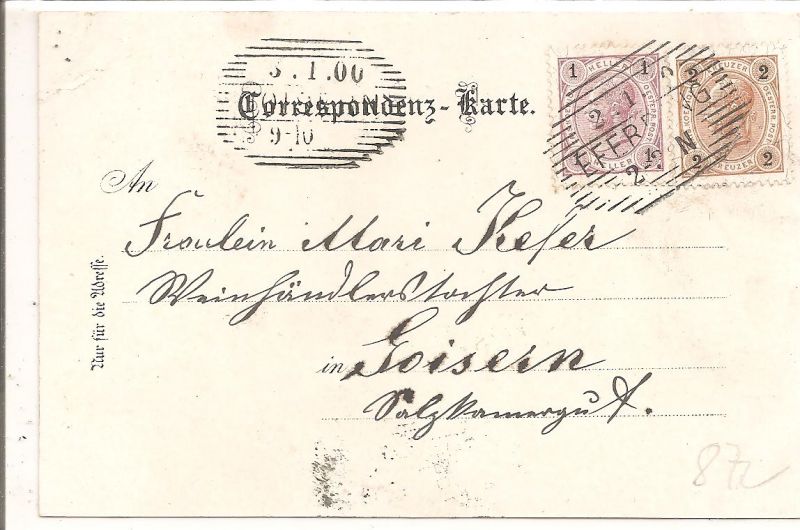 3.1.00
9-10
Correspondenz-Karte.
1 HELLER 1
1 HELLER
2 KREUZER 2
OESTERR. POST
2 KREUZER 2
2 1
EFERD
2-3 N
An
Fräulein Mari Kefer
Weinhändlerstochter
in Goisern
Salzkamergut.
Nur für die Adresse.
87z